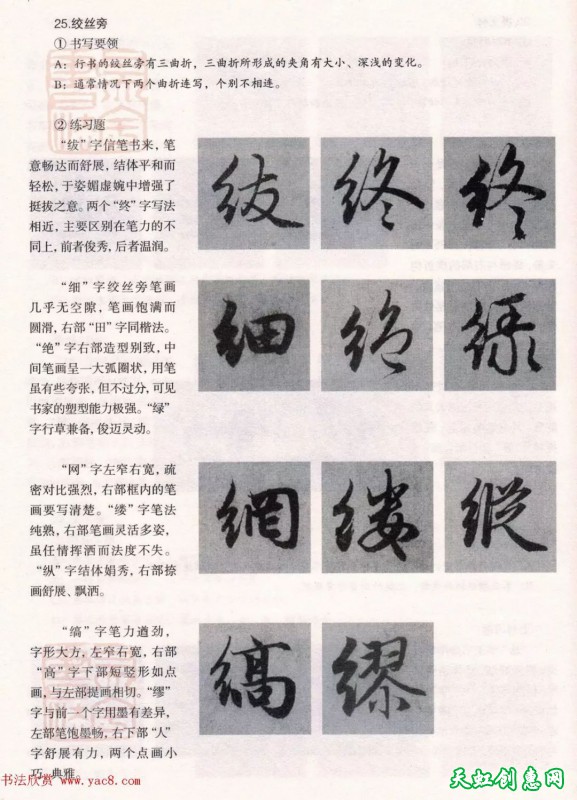 25.绞丝旁
① 书写要领
A：行书的绞丝旁有三曲折，三曲折所形成的夹角有大小、深浅的变化。
B：通常情况下两个曲折连写，个别不相连。
② 练习题
“绂”字信笔书来，笔
意畅达而舒展，结体平和而
轻松，于姿媚虚婉中增强了
挺拔之意。两个“终”字写法
相近，主要区别在笔力的不
同上，前者俊秀，后者温润。
紱 終 終
“细”字绞丝旁笔画
几乎无空隙，笔画饱满而
圆滑，右部“田”字同楷法。
“绝”字右部造型别致，中
间笔画呈一大弧圈状，用笔
虽有些夸张，但不过分，可见
书家的塑型能力极强。“绿”
字行草兼备，俊迈灵动。
細 絕 緑
“网”字左窄右宽，疏
密对比强烈，右部框内的笔
画要写清楚。“缕”字笔法
纯熟，右部笔画灵活多姿，
虽任情挥洒而法度不失。
“纵”字结体娟秀，右部捺
画舒展、飘洒。
網 縷 縱
“缟”字笔力遒劲，
字形大方，左窄右宽，右部
“高”字下部短竖形如点
画，与左部提画相切。“缪”
字与前一个字用墨有差异，
左部笔饱墨畅，右下部“人”
字舒展有力，两个点画小
巧、典雅。
縞 繆
书法欣赏 www.yac8.com
天虹创意网